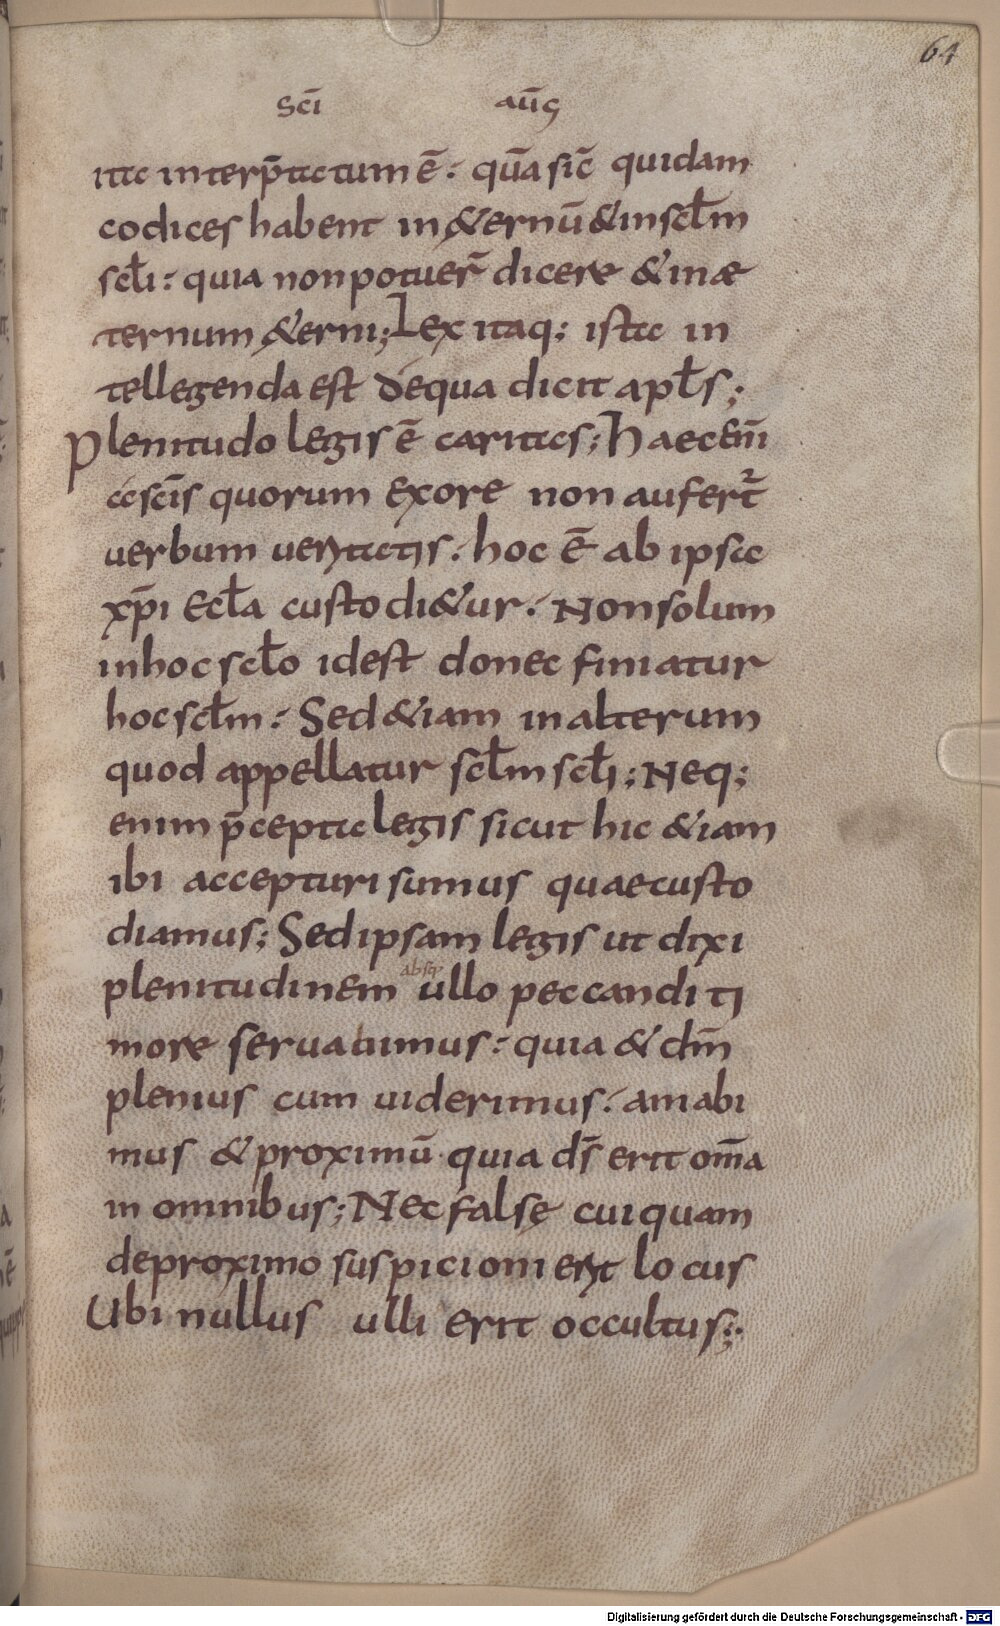 64
sc̄i aūg
ita interp̄tatum ē: quā sic̄ quidam
codices habent in &ernū & in sc̄lm
sc̄li: quia non potuer̄ dicere & in æ
ternum &erni; Lex itaq; ista in
tellegenda est de qua dicit apl̄s;
Plenitudo legis ē caritas; Haec eni̅
a sc̄is quorum ex ore non aufert̄
uerbum ueritatis. hoc ē ab ipsa
xp̄i eccl̄a custodi&ur. Non solum
in hoc sc̄lo id est donec finiatur
hoc sc̄lm: Sed &iam in alterum
quod appellatur sc̄lm sc̄li; Neq;
enim p̄cepta legis sicut hic &iam
ibi accepturi sumus quae custo
diamus; Sed ipsam legis ut dixi
absq;
plenitudinem ullo peccandi ti
more seruabimus: quia & dm̄
plenius cum uiderimus. amabi
mus & proximū quia ds̄ erit om̄a
in omnibus; Nec falsę cuiquam
de proximo suspicioni erit locus
Ubi nullus ulli erit occultus;
Digitalisierung gefördert durch die Deutsche Forschungsgemeinschaft - DFG